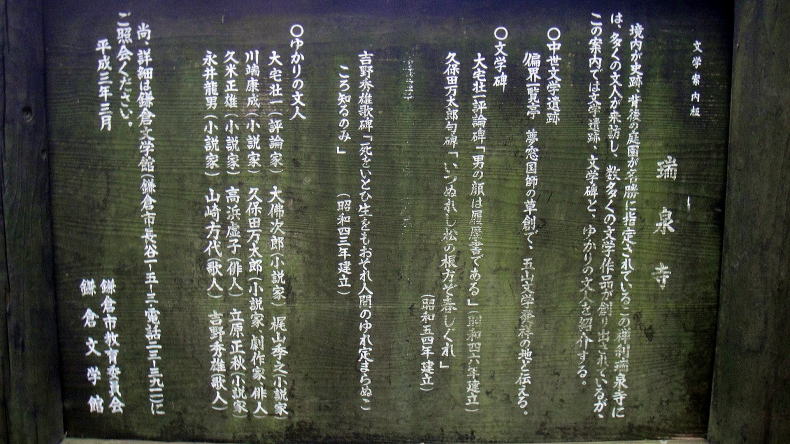 文学案内版
瑞泉寺
境内が史跡、背後の庭園が名勝に指定されているこの禅刹瑞泉寺に
は、多くの文人が来訪し、数多くの文学作品が創り出されているが、
この案内では文学遺跡、文学碑と、ゆかりの文人を紹介する。
〇中世文学遺跡
偏界一覧亭 夢窓国師の草創で、五山文学発祥の地と伝える。
〇文学碑
大宅壮一評論碑「男の顔は履歴書である」(昭和四六年建立)
久保田万太郎句碑「いつぬれし松の根方ぞ春しぐれ」
(昭和五四年建立)
吉野秀雄歌碑「死をいとひ生をもおそれ人間のゆれ定まらぬこ
ころ知るのみ」 (昭和四三年建立)
〇ゆかりの文人
大宅壮一(評論家) 大佛次郎(小説家) 梶山季之(小説家)
川端康成(小説家) 久保田万太郎(小説家、劇作家、俳人)
久米正雄(小説家) 高浜虚子(俳人) 立原正秋(小説家)
永井龍男(小説家) 山崎方代(歌人) 吉野秀雄(歌人)
尚、詳細は鎌倉文学館(鎌倉市長谷一-五-三、電話二三-三九一一)に
ご照会ください。
平成三年三月
鎌倉市教育委員会
鎌倉文学館